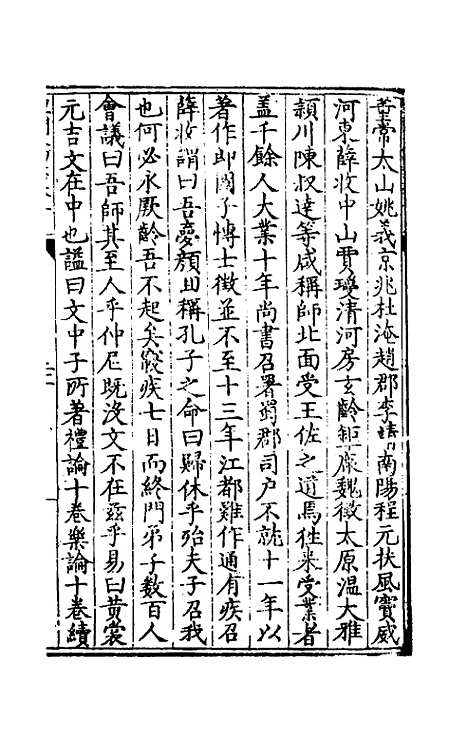 常太山姚義京兆杜淹趙郡李靖南陽程元扶風竇威
河東薛收中山賈瓊清河房玄齡鉅鹿魏徵太原溫大雅
潁川陳叔達等咸稱師北面受王佐之道焉往來受業者
盖千餘人大業十年尚書召署蜀郡司户不就十一年以
著作郎國子博士徵並不至十三年江都難作通有疾召
薛收謂曰吾夢顔回稱孔子之命曰歸休乎殆夫子召我
也何必永厥齡吾不起矣寢疾七日而終門弟子數百人
會議曰吾師其至人乎仲尼既没文不在兹乎易曰黄裳
元吉文在中也諡曰文中子所著禮論十卷樂論十卷續